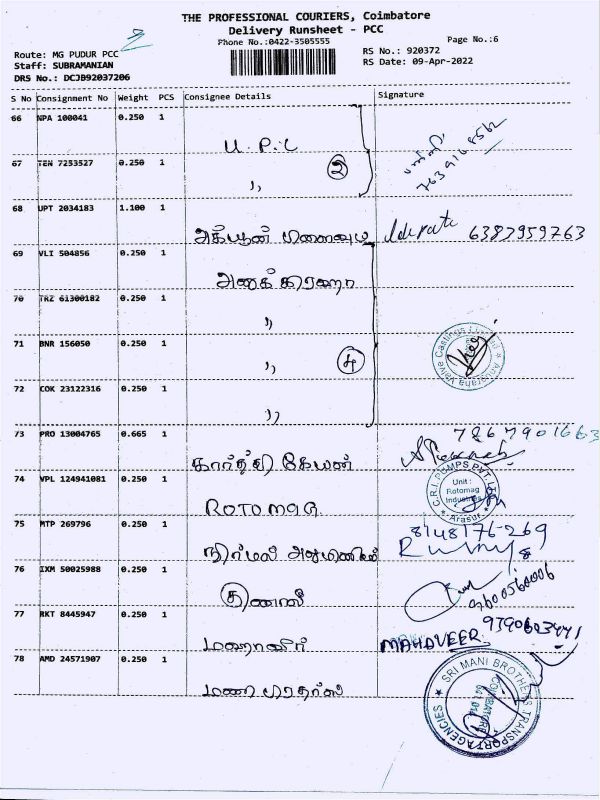 THE PROFESSIONAL COURIERS, Coimbatore
Delivery Runsheet - PCC
Phone No.:0422-3505555
Page No.:6
Route: MG PUDUR PCC
Staff: SUBRAMANIAN
DRS No.: DCJB92037206
RS No.: 920372
RS Date: 09-Apr-2022
S No Consignment No Weight PCS Consignee Details Signature
66 NPA 100041 0.250 1
U.P.C
67 TEN 7253527 0.250 1
,, 2
7639168562
68 UPT 2034183 1.100 1
6383959763
69 VLI 504856 0.250 1
அனுக்கிரஹா
70 TRZ 61300182 0.250 1
,,
71 BNR 156050 0.250 1
,, 4
Anugraha Valve Castings Limited
72 COK 23122316 0.250 1
,,
73 PRO 13004765 0.665 1
7867901663
74 VPL 124941081 0.250 1
ROTOMAG
C.R.I. PUMPS PVT. LTD
Unit :
Rotomag
Industries
Arasur
75 MTP 269796 0.250 1
8148176269
நிர்மல்
76 IXM 50025988 0.250 1
9600560006
77 RKT 8445947 0.250 1
மஹாவீர்
MAHAVEER 9390603441
78 AMD 24571907 0.250 1
மணி பிரதர்ஸ்
SRI MANI BROTHERS TRANSPORT AGENCIES
COIMBATORE